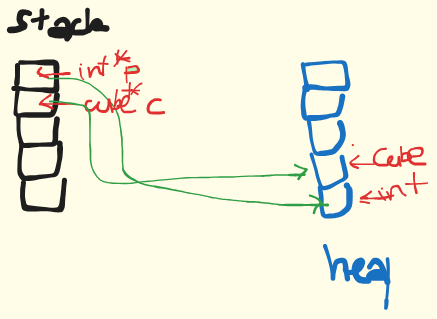 stack
int* p
cube* c
cube
int
heap